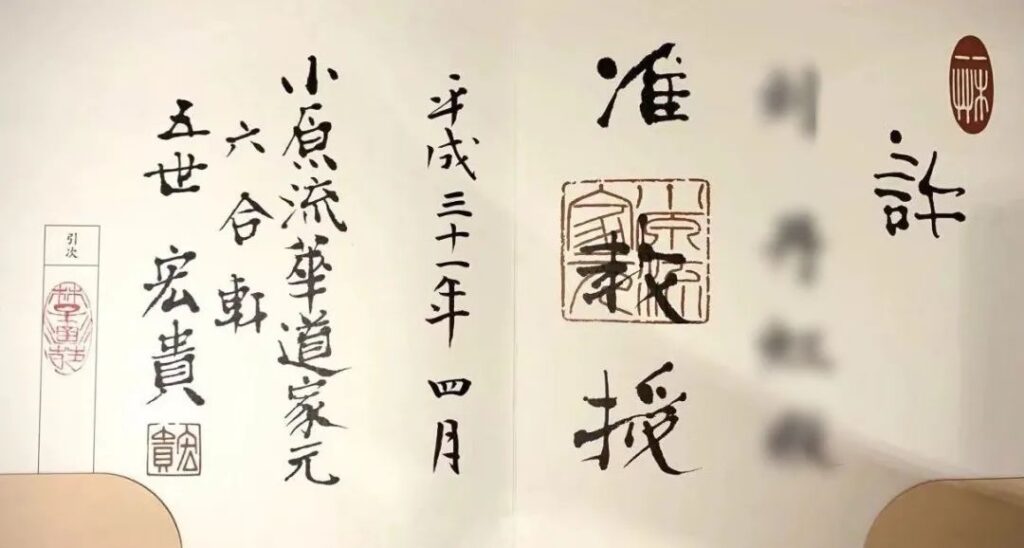 許
准教授
小原流家元
平成三十一年 四月
小原流華道家元
六合軒
五世 宏貴
宏貴
引次